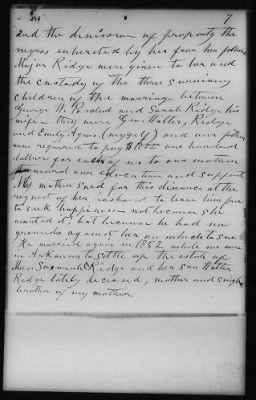 7
and the division of property the
negros inherited by her from her father
Major Ridge were given to her and
the custody of the three surviving
children of the marriage between
George W. Paschal and Sarah Ridge his
wife - they were Geo. Walter, Ridge
and Emily Agnes (myself) and our father
was required to pay $ one hundred
dollars for each of us to our mother
toward our education and support
My mother sued for this divorce at the
request of her husband, to leave him free
to seek happiness - not because she
wanted it, but because he had no
grounds against her on which to sue.
He married again in 1852 while we were
in Arkansas to settle up the estate of
Mrs. Susannah Ridge and her son Walter
Ridge lately deceased, mother and single
brother of my mother